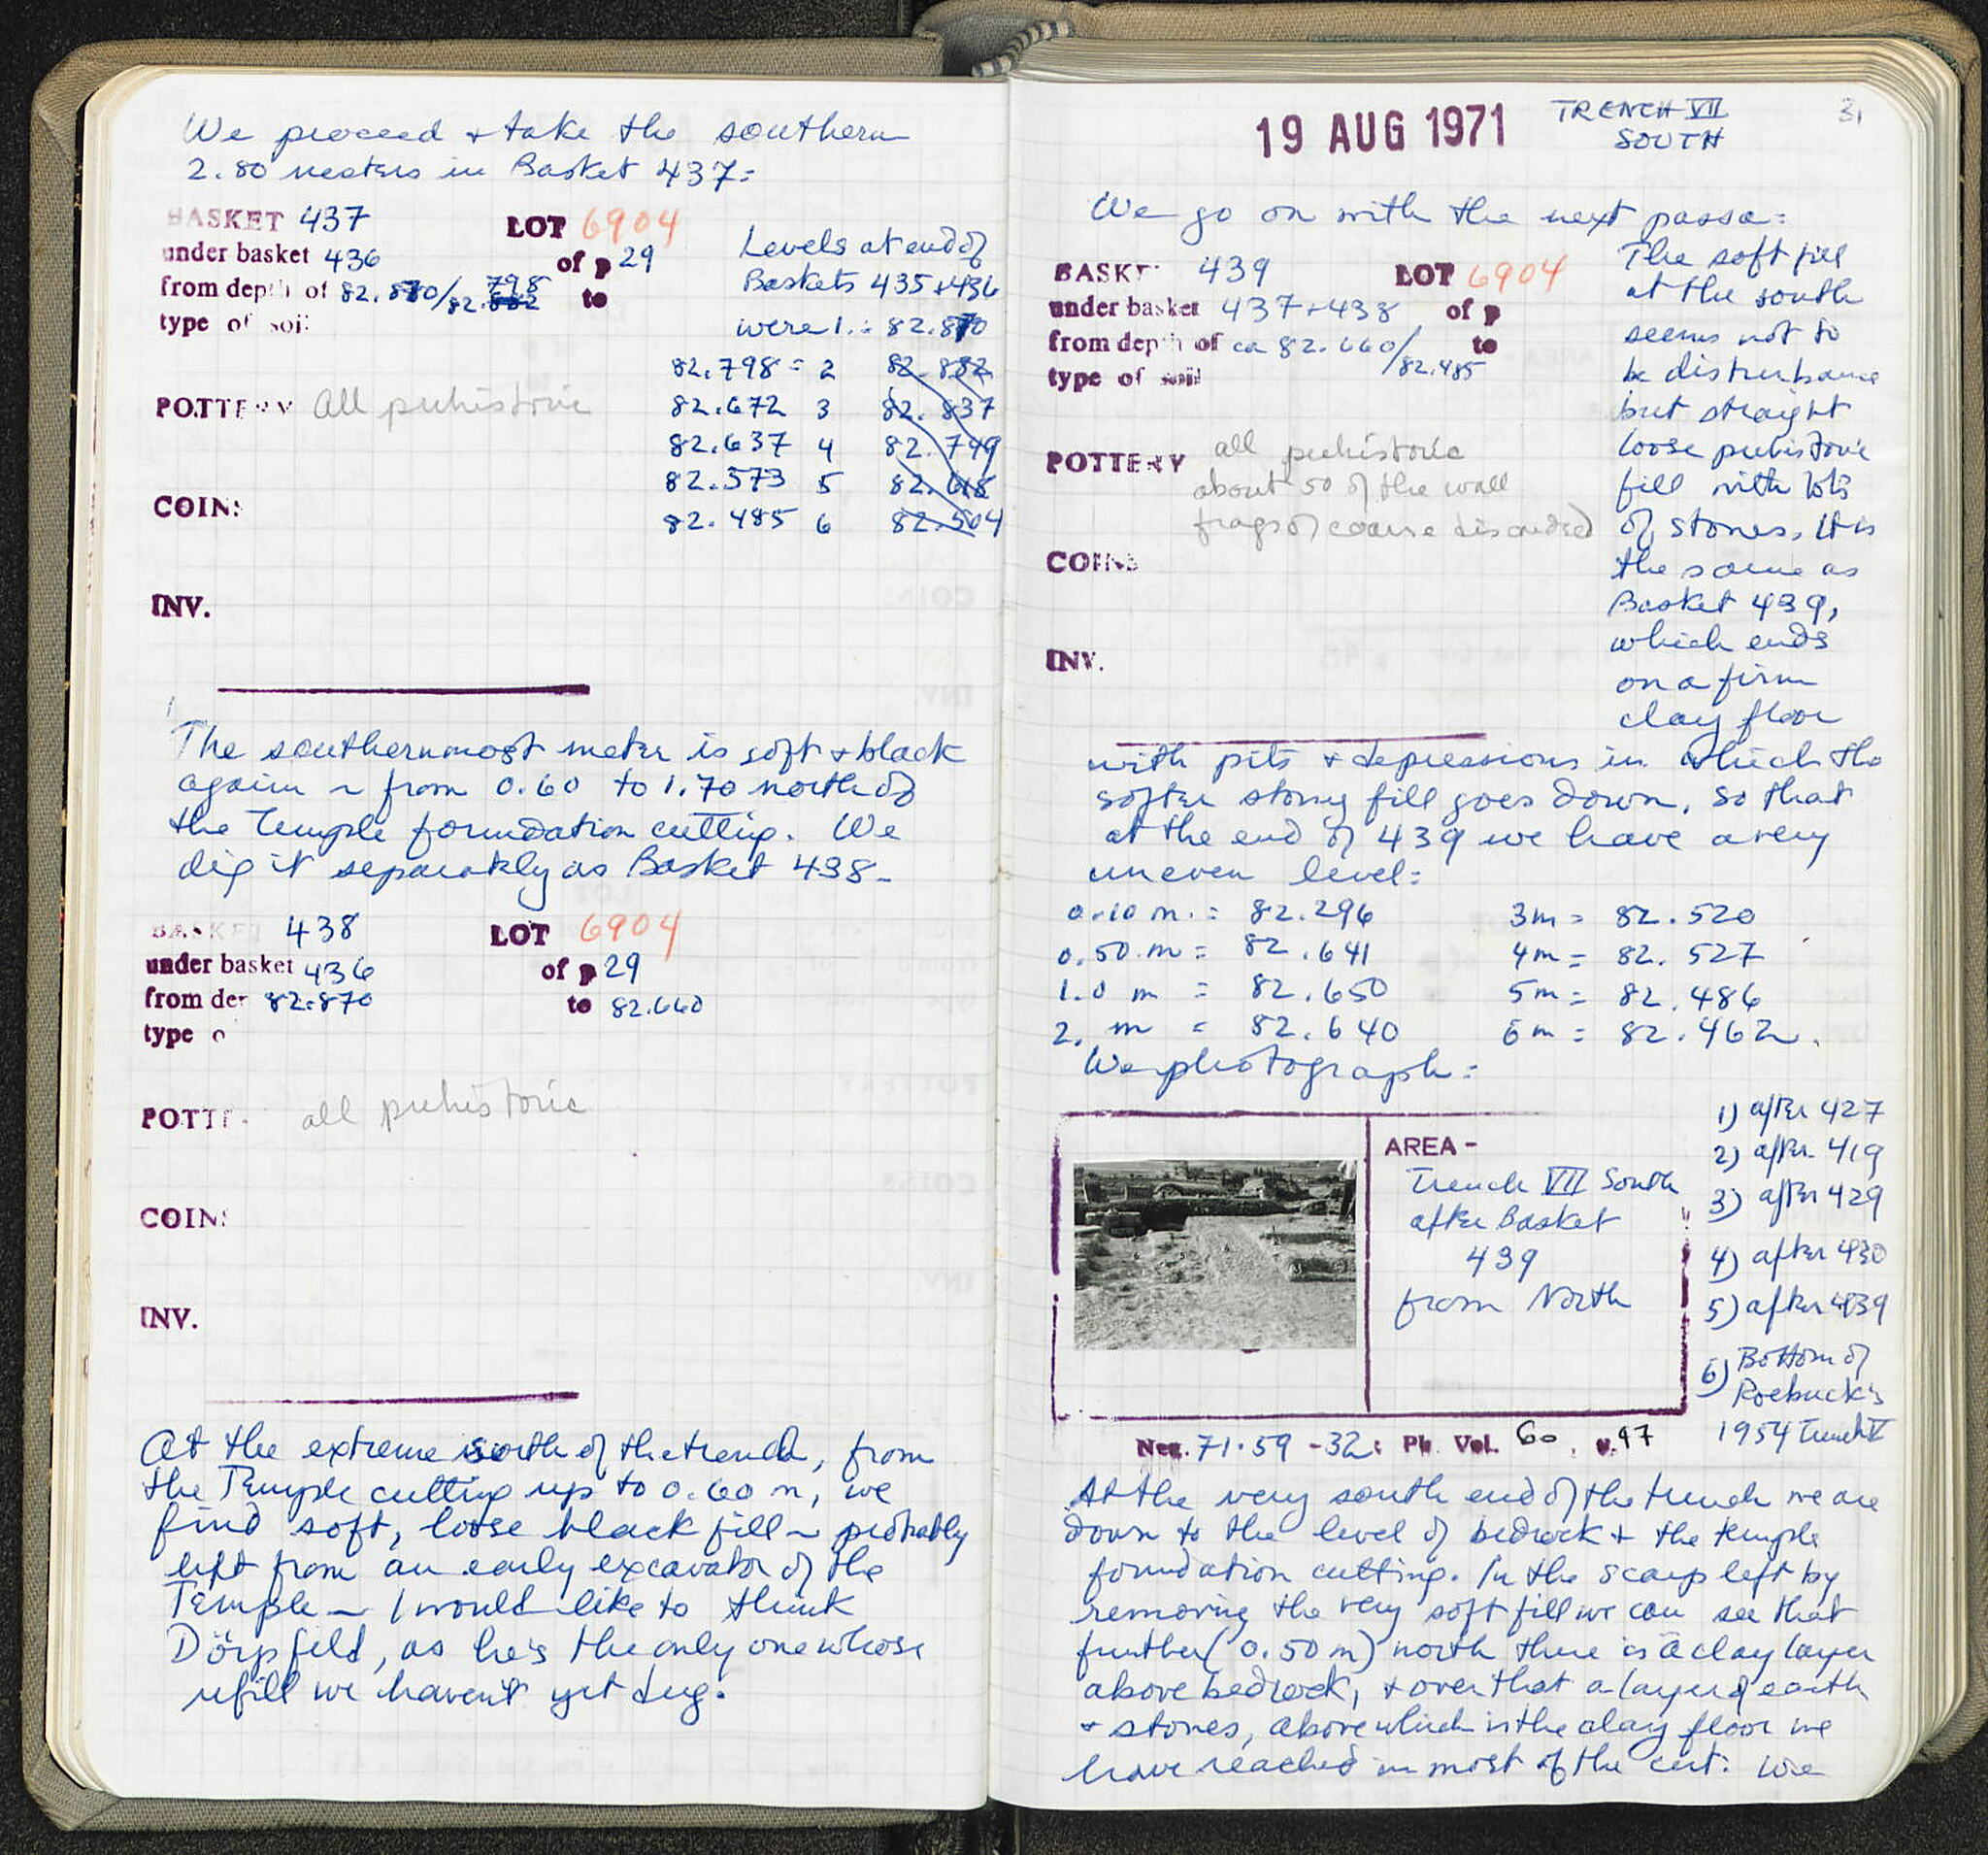 We proceed + take the southern
2.80 meters in Basket 437:
BASKET 437 LOT 6904
under basket 436 of p 29
from depth of 82.870/82.798 to
type of soil
Levels at end of
Baskets 435+436
were 1.: 82.870
82.798 = 2 82.882
82.672 3 82.837
82.637 4 82.749
82.573 5 82.618
82.485 6 82.504
POTTERY All prehistoric
COINS
INV.
The southernmost meter is soft + black
again ~ from 0.60 to 1.70 north of
the Temple foundation cutting. We
dig it separately as Basket 438-
BASKET 438 LOT 6904
under basket 436 of p 29
from dep 82.870 to 82.660
type o
POTTE all prehistoric
COINS
INV.
At the extreme south of the trench, from
the Temple cutting up to 0.60 m, we
find soft, loose black fill ~ probably
left from an early excavator of the
Temple ~ I would like to think
Dörpfeld, as he's the only one whose
refill we haven't yet dug.
19 AUG 1971 TRENCH VII
SOUTH
31
We go on with the next passe:
BASKET 439 LOT 6904
under basket 437+438 of p
from depth of ca 82.660/82.485 to
type of soil
POTTERY all prehistoric
about 50 of the wall
frags of coarse discarded
COINS
INV.
The soft fill
at the south
seems not to
be disturbance
but straight
loose prehistoric
fill with lots
of stones. It is
the same as
Basket 439,
which ends
on a firm
clay floor
with pits + depressions in which the
softer stony fill goes down, so that
at the end of 439 we have a very
uneven level:
0.10 m. = 82.296 3m = 82.520
0.50 m = 82.641 4m = 82.527
1.0 m = 82.650 5m = 82.486
2. m = 82.640 6m = 82.462.
We photograph:
AREA -
Trench VII South
after Basket
439
from North
1) after 427
2) after 419
3) after 429
4) after 430
5) after 439
6) Bottom of
Roebuck's
1954 Trench V
Neg. 71-59-32: Ph. Vol. 60, p. 97
At the very south end of the trench we are
down to the level of bedrock + the temple
foundation cutting. In the scarp left by
removing the very soft fill we can see that
further (0.50 m) north there is a clay layer
above bedrock, + over that a layer of earth
+ stones, above which is the clay floor we
have reached in most of the cut. We